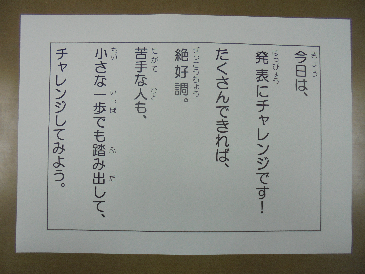 今日は、
発表にチャレンジです！
たくさんできれば、
絶好調。
苦手な人も、
小さな一歩でも踏み出して、
チャレンジしてみよう。